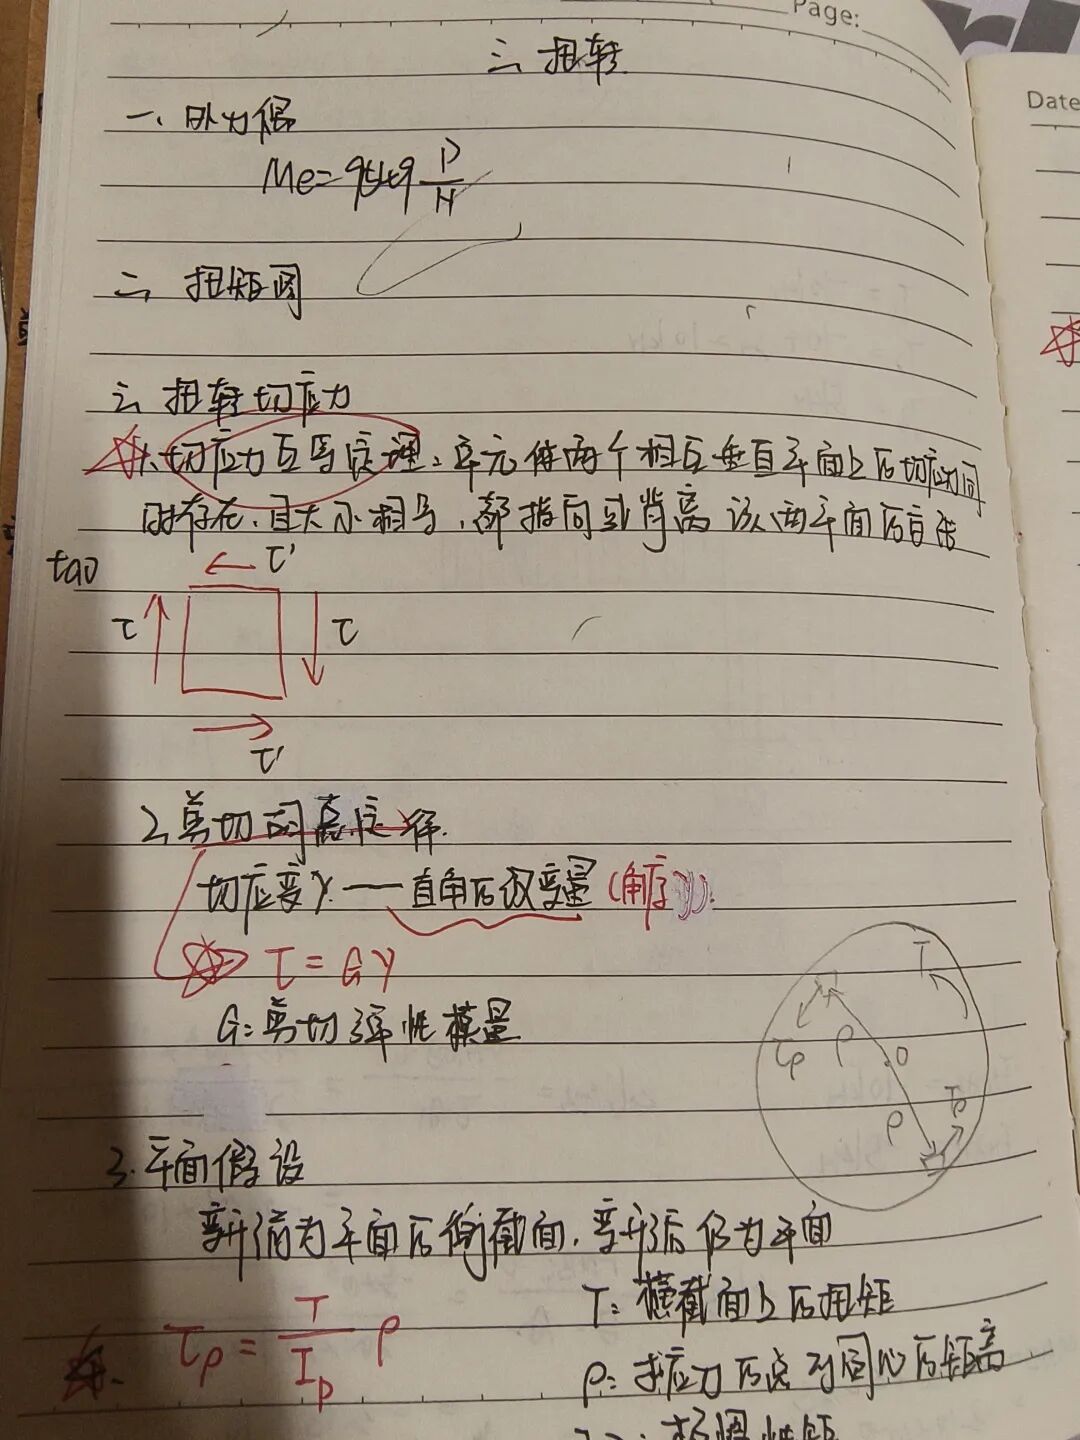 Page:
Date
三、扭转
一、外力偶
Me=9549 P/n
二、扭矩图
三、扭转切应力
1.切应力互等定理：单元体两个相互垂直平面上的切应力同
时存在，且大小相等，都指向或背离该两平面的交线
tao
τ'
τ
τ
τ'
2.剪切胡克定律.
切应变γ——直角的改变量(角度γ).
τ=Gγ
G：剪切弹性模量
T
τρ
ρ
O
ρ
τρ
3.平面假设
变形前为平面的横截面，变形后仍为平面
τρ = T/Ip ρ
T：横截面上的扭矩
ρ：求应力的点到圆心的距离
极惯性矩